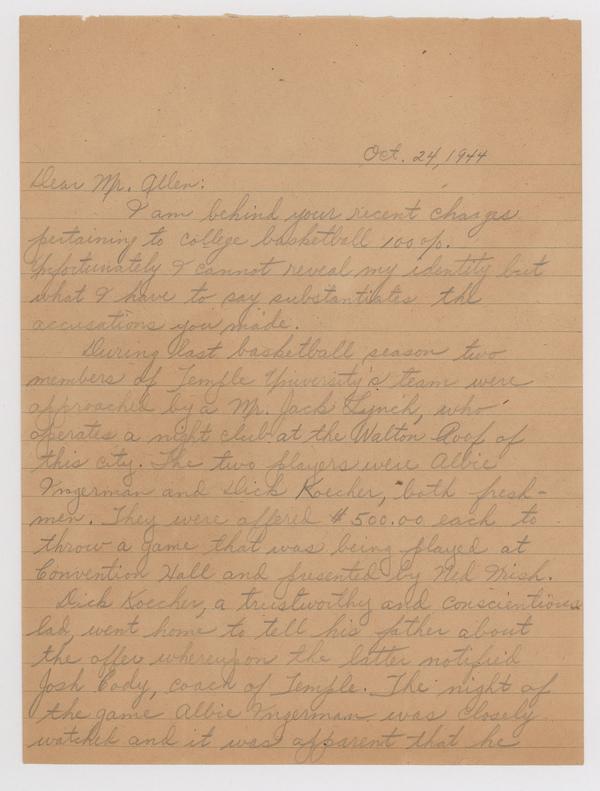 Oct. 24, 1944
Dear Mr. Allen:
I am behind your recent charges
pertaining to college basketball 100 o/o.
Unfortunately I cannot reveal my identity but
what I have to say substantiates the
accusations you made.
During last basketball season two
members of Temple University's team were
approached by a Mr. Jack Lynch, who
operates a night club at the Walton Roof of
this city. The two players were Albie
Ingerman and Dick Koecher, both fresh-
men. They were offered $500.00 each to
throw a game that was being played at
Convention Hall and presented by Ned Irish.
Dick Koecher, a trustworthy and conscientious
lad, went home to tell his father about
the offer whereupon the latter notified
Josh Cody, coach of Temple. The night of
the game Albie Ingerman was closely
watched and it was apparent that he